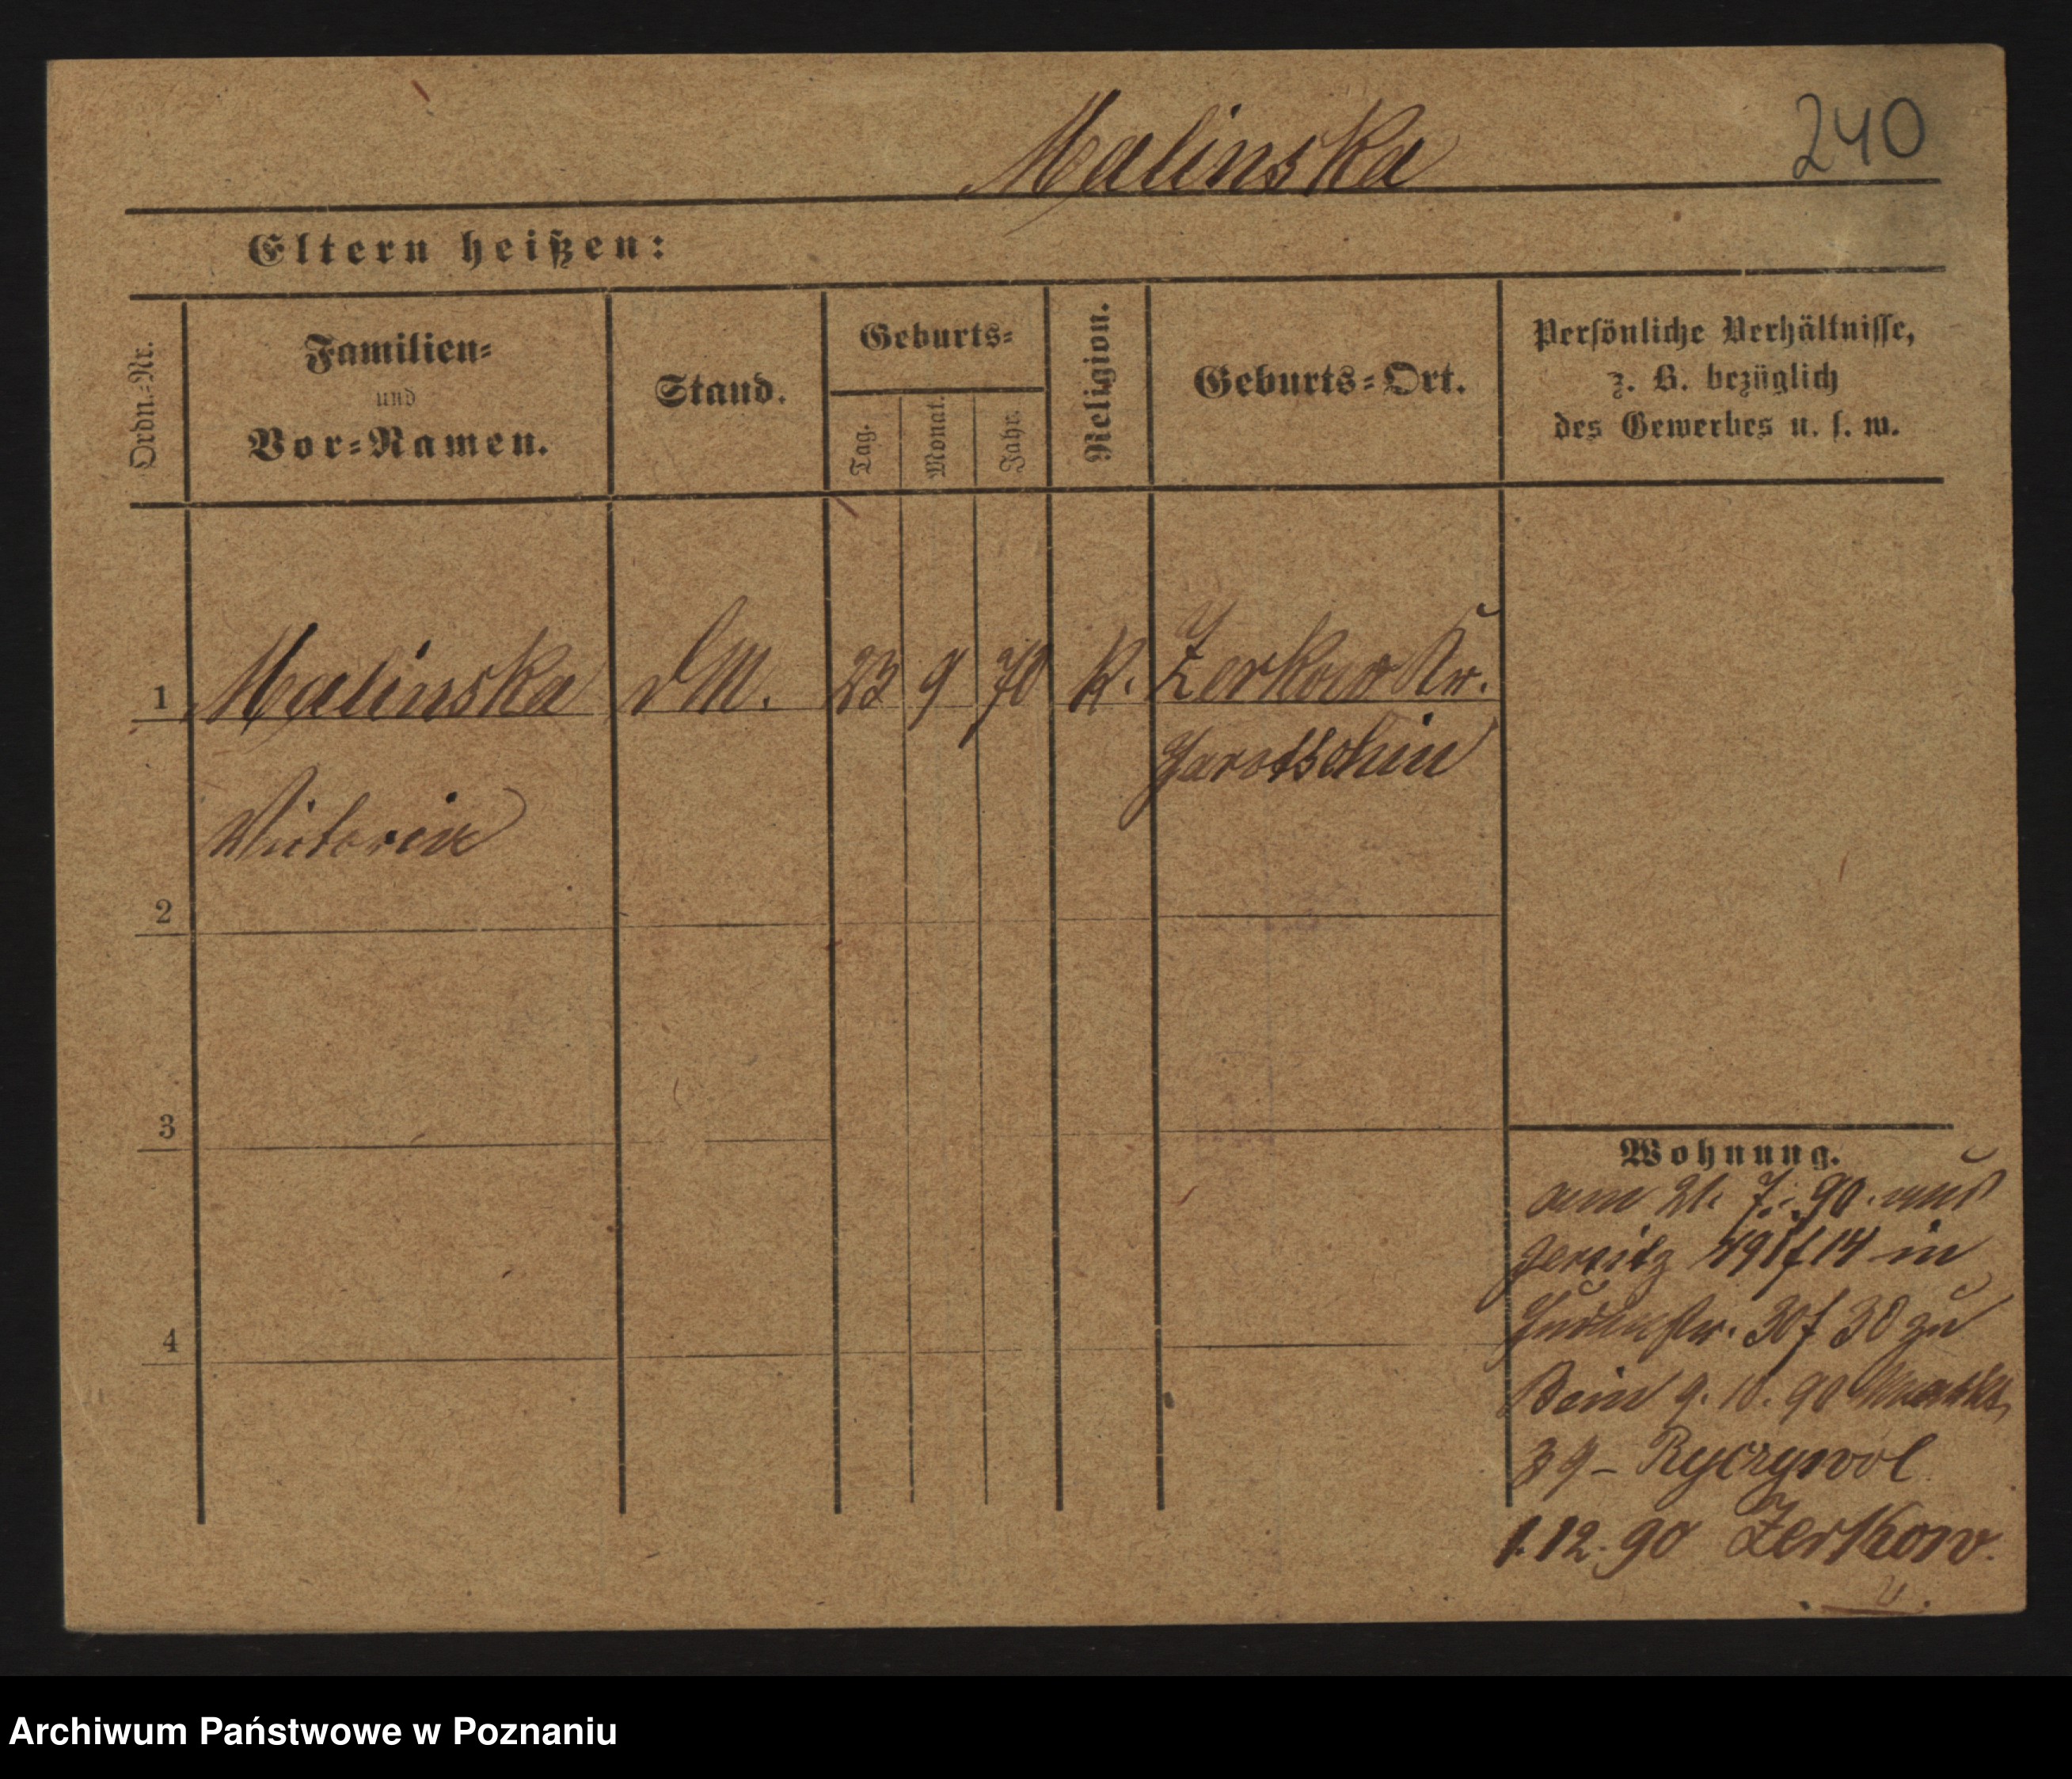 Malinska
240
Eltern heißen:
Ordn.-Nr.
Familien-
und
Vor-Namen.
Stand.
Geburts-
Tag.
Monat.
Jahr.
Religion.
Geburts-Ort.
Persönliche Verhältnisse,
z. B. bezüglich
des Gewerbes u. s. w.
1 Malinska dM. 23 9 70 K. Zerkow Kr.
Jarotschin
Victoria
2
3
4
Wohnung.
am 21. 7. 90. aus
Jersitz in
Judenstr. 30 f 30 zu
9. 10. 90
39 - Ryczywol
1.12.90 Zerkow.
Archiwum Państwowe w Poznaniu